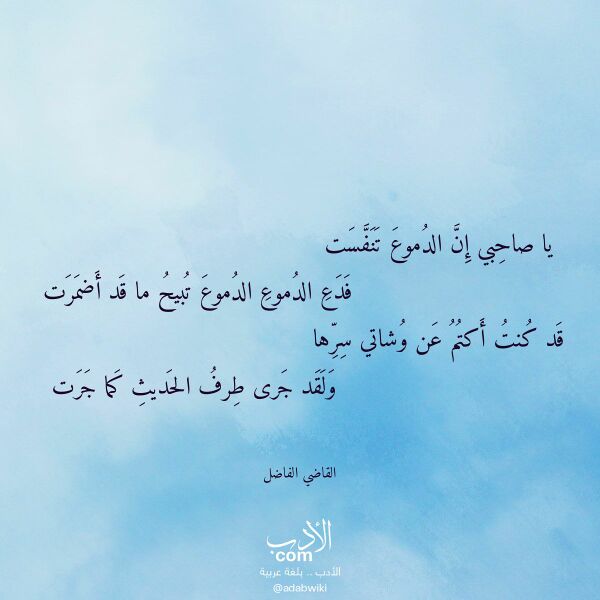 يا صاحِبي إِنَّ الدُموعَ تَنَفَّسَت
فَدَعِ الدُموعِ الدُموعَ تُبيحُ ما قَد أَضمَرَت
قَد كُنتُ أَكتُمُ عَن وُشاتي سِرِّها
وَلَقَد جَرى طِرفُ الحَديثِ كَما جَرَت
القاضي الفاضل
الأدب
com
الأدب .. بلغة عربية
@adabwiki